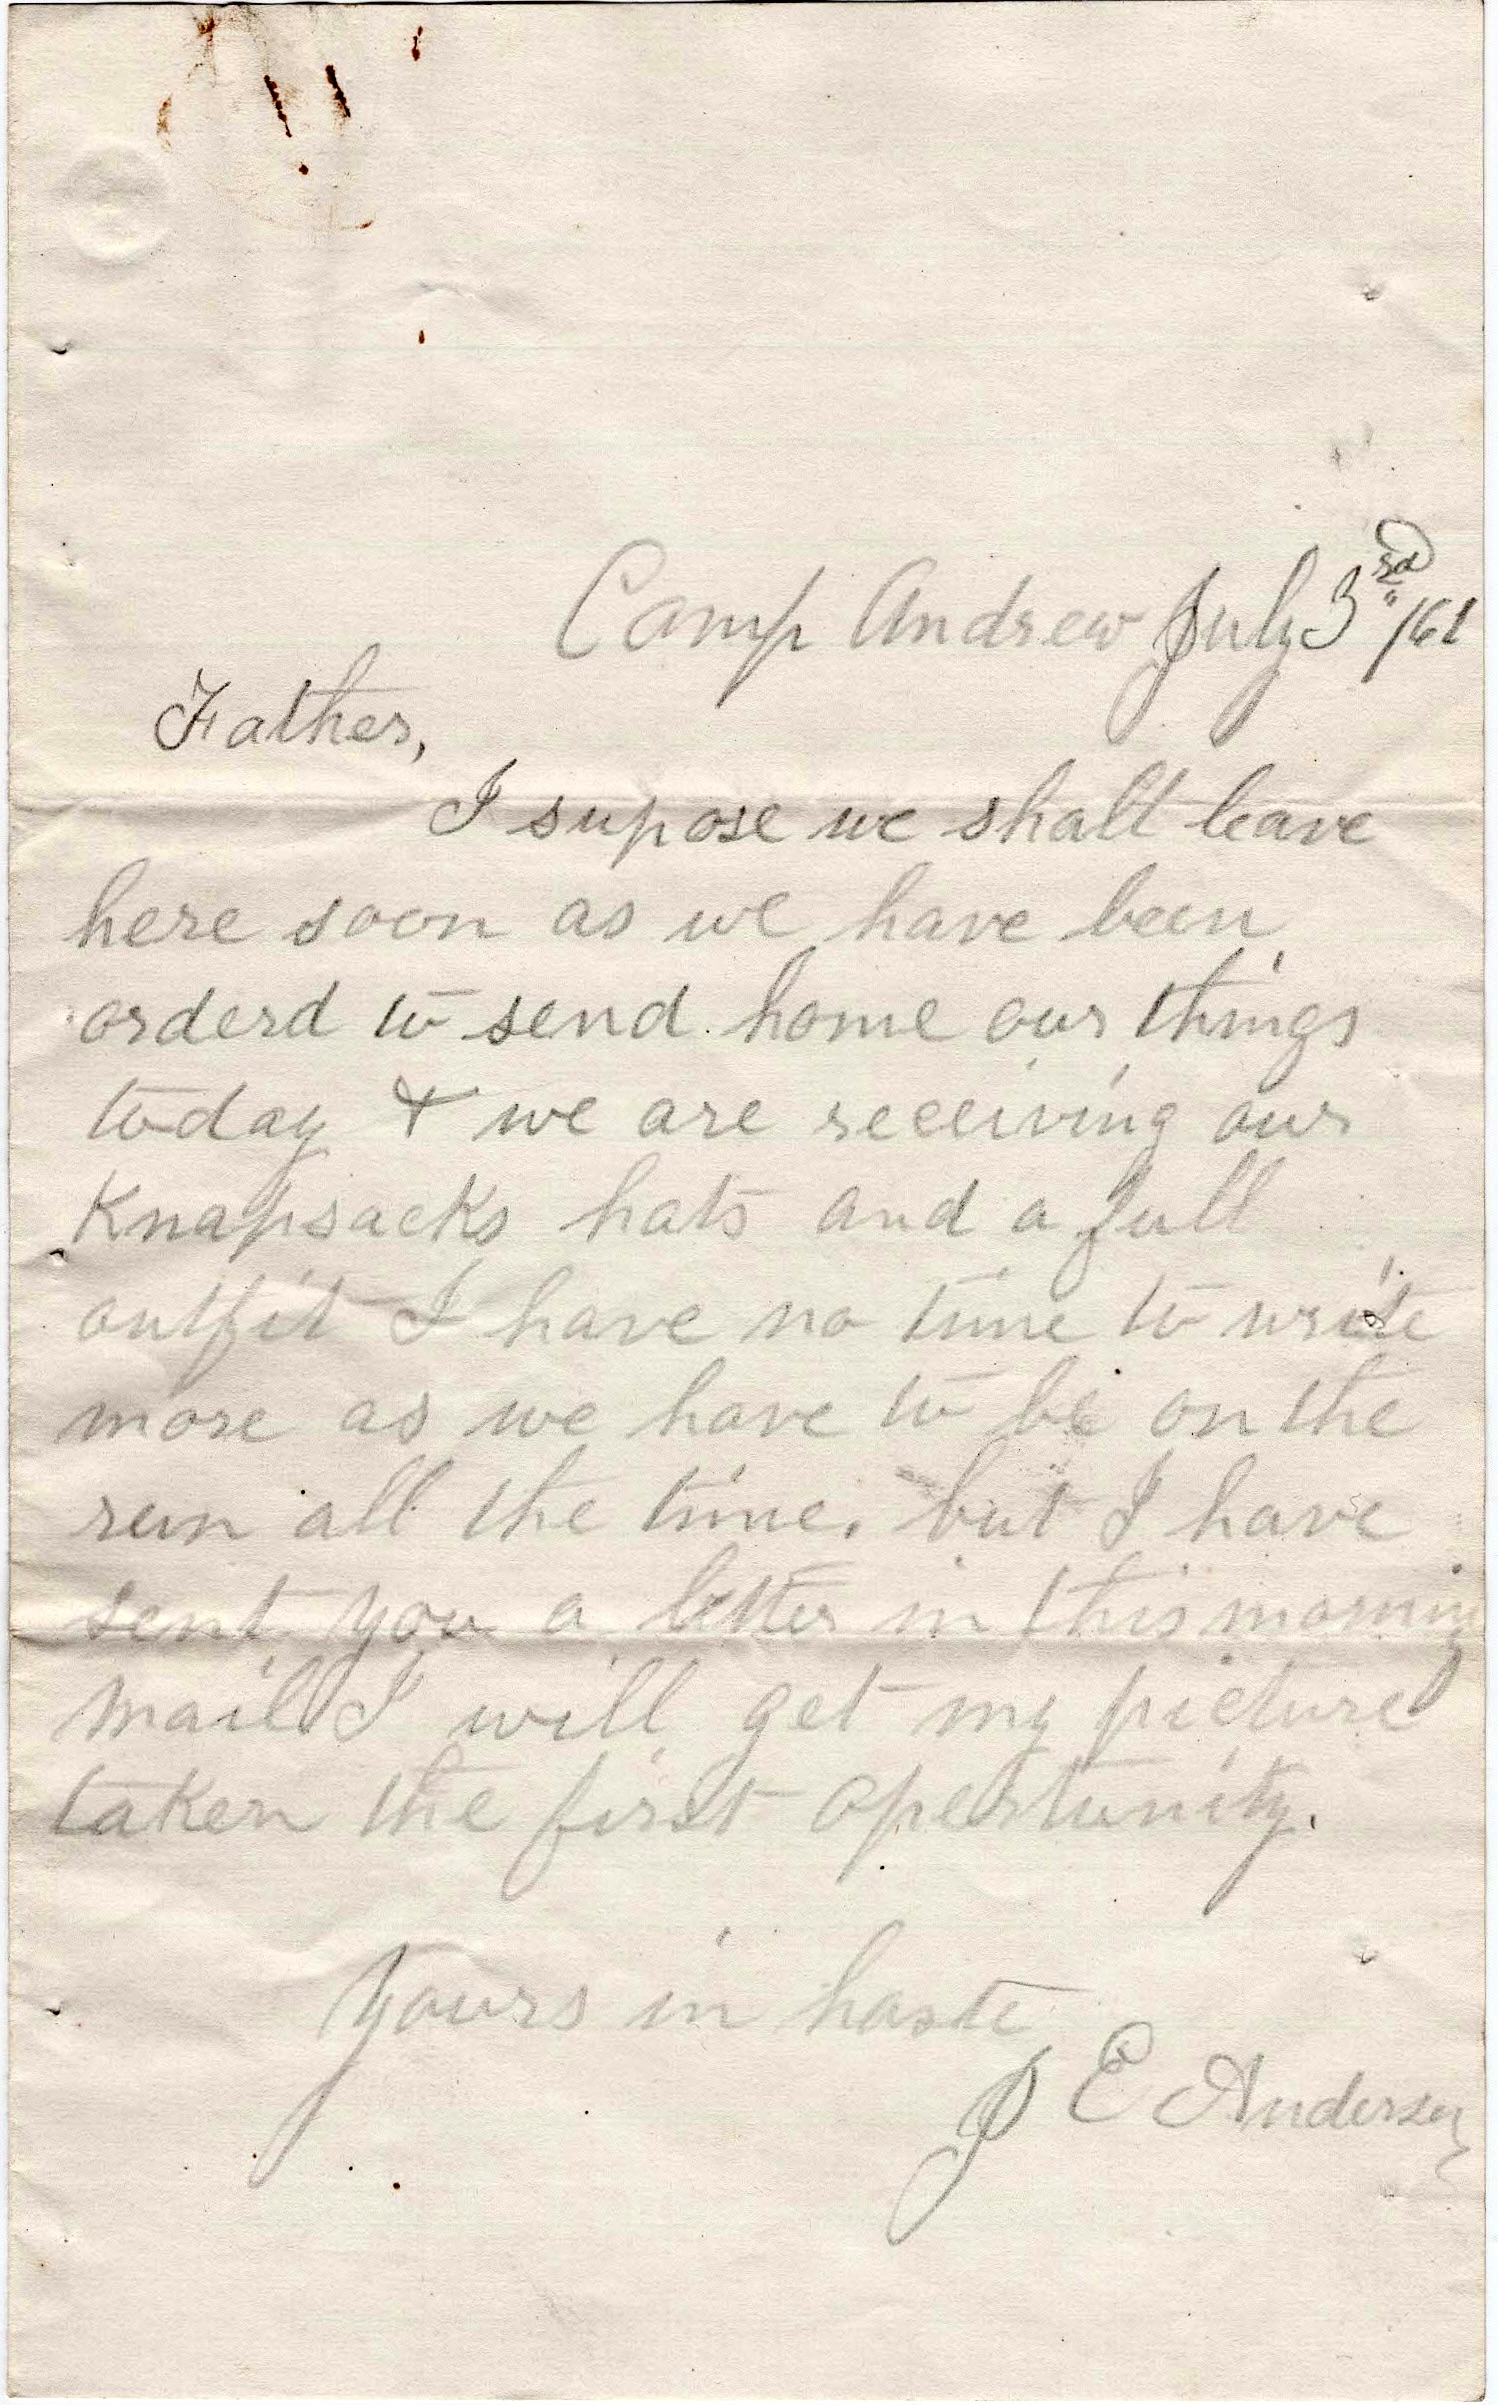 Camp Andrew July 3rd /61
Father,
I supose we shall leave
here soon as we have been
orderd to send home our things
today & we are receiving our
Knapsacks hats and a full
outfit I have no time to write
more as we have to be on the
run all the time. but I have
sent you a letter in this morning
mail I will get my picture
taken the first opertunity.
Yours in haste
J E Anderson